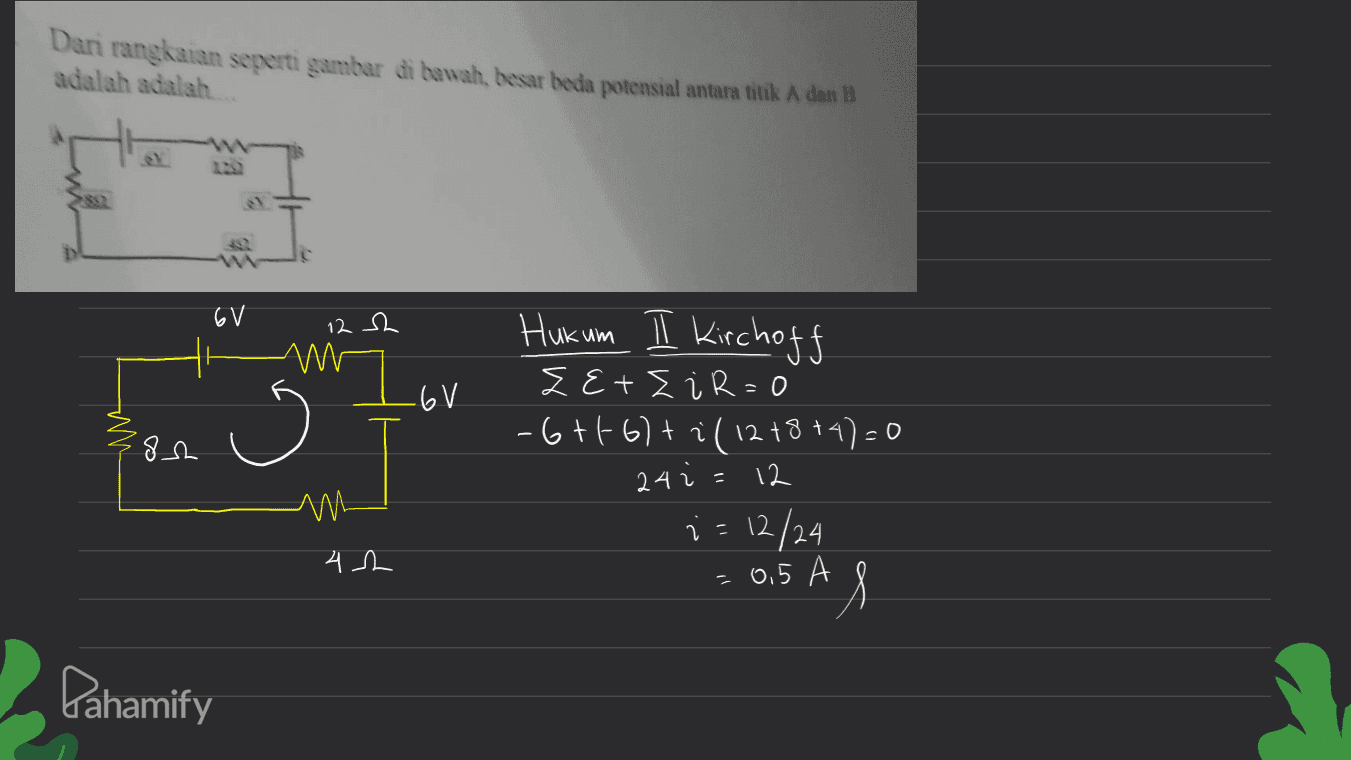 Dari rangkaian seperti gambar di bawah, besar beda potensial antara titik A dan B
adalah adalah....
A
6V
12Ω
B
8Ω
6V
4Ω
D
C
6V
12 Ω
6V
8Ω
4Ω
Hukum II Kirchoff
Σ ε + Σ i R = 0
-6 + (-6) + i (12+8+4) = 0
24 i = 12
i = 12/24
= 0,5 A
Pahamify